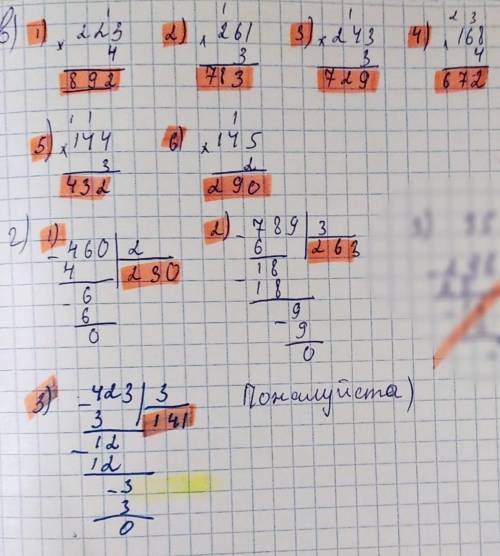 в) 1) × 223 2) × 261 3) × 243 4) × 168
4 3 3 4
892 783 729 672
5) × 144 6) × 145
3 2
432 290
г) 1) - 460 2 2) - 789 3
4 230 6 263
- 6 - 18
6 18
0 - 9
9
0
3) - 423 3 Пожалуйста)
3 141
- 12
12
- 3
3
0